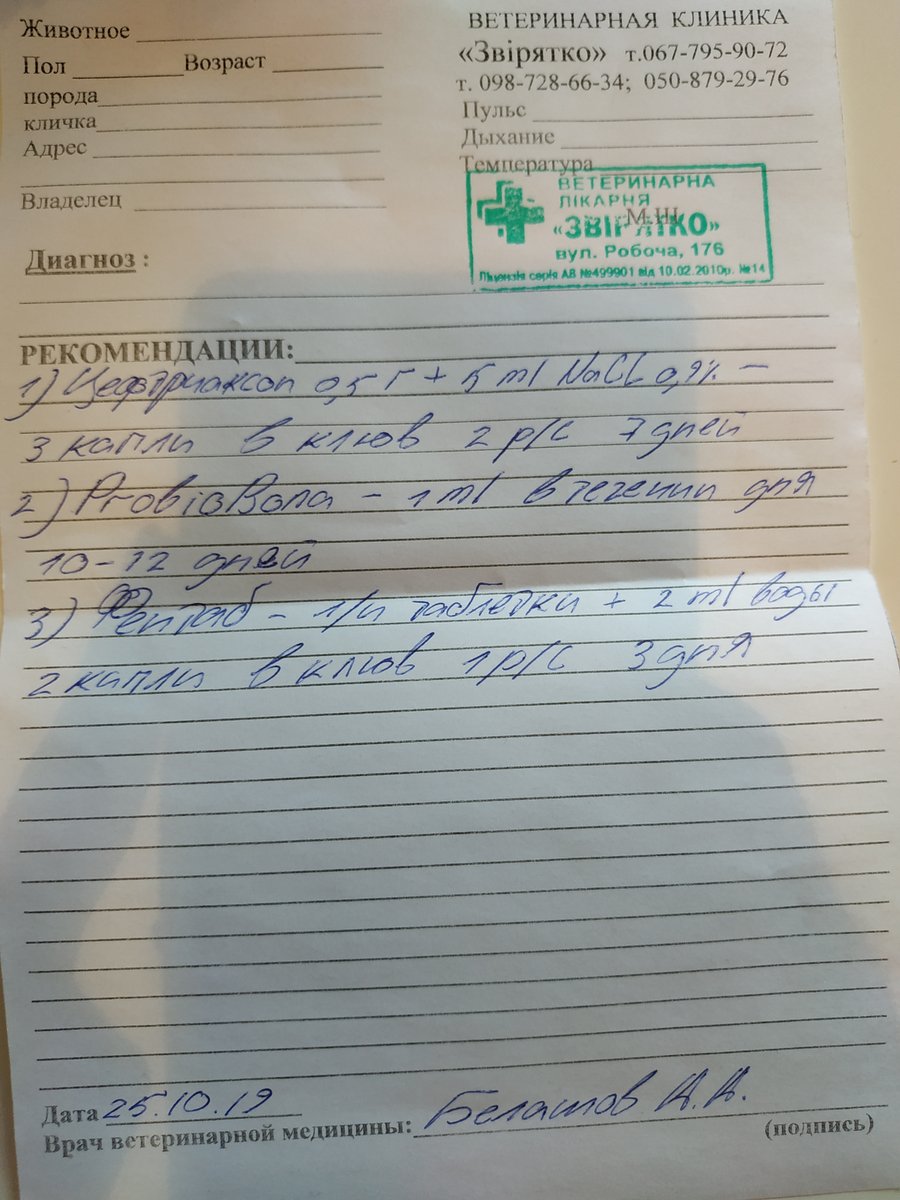 Животное
Пол Возраст
порода
кличка
Адрес
Владелец
ВЕТЕРИНАРНАЯ КЛИНИКА
«Звірятко» т.067-795-90-72
т. 098-728-66-34; 050-879-29-76
Пульс
Дыхание
Температура
ВЕТЕРИНАРНА
ЛІКАРНЯ
«ЗВІРЯТКО»
вул. Робоча, 176
Ліцензія серія АВ №499901 від 10.02.2010р. №14
Диагноз :
РЕКОМЕНДАЦИИ:
1) Цефтриаксон 0,5 г + 5 ml NaCl 0,9% —
3 капли в клюв 2 р/с 7 дней
2) ProbioBona - 1 ml в течении дня
10-12 дней
3) Фентаб - 1/4 таблетки + 2 ml воды
2 капли в клюв 1 р/с 3 дня
Дата 25.10.19
Врач ветеринарной медицины: Белашов
(подпись)